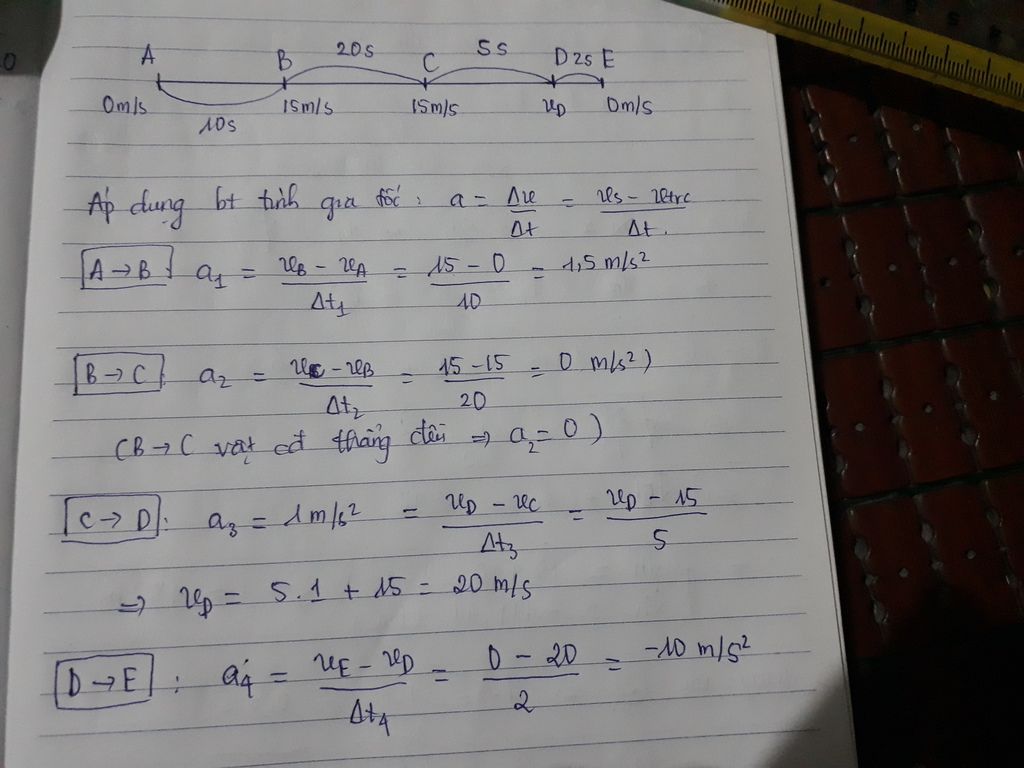 A B 20s C 5s D 2s E
0m/s 15m/s 15m/s vD 0m/s
10s
Áp dụng bt tính gia tốc: a = Δv/Δt = vs - vtrc/Δt.
A → B : a1 = vB - vA/Δt1 = 15 - 0/10 = 1,5 m/s²
B → C : a2 = vC - vB/Δt2 = 15 - 15/20 = 0 m/s²)
(B → C vật cđ thẳng đều ⇒ a2 = 0)
C → D : a3 = 1m/s² = vD - vC/Δt3 = vD - 15/5
⇒ vD = 5.1 + 15 = 20 m/s
D → E : a4 = vE - vD/Δt4 = 0 - 20/2 = -10 m/s²